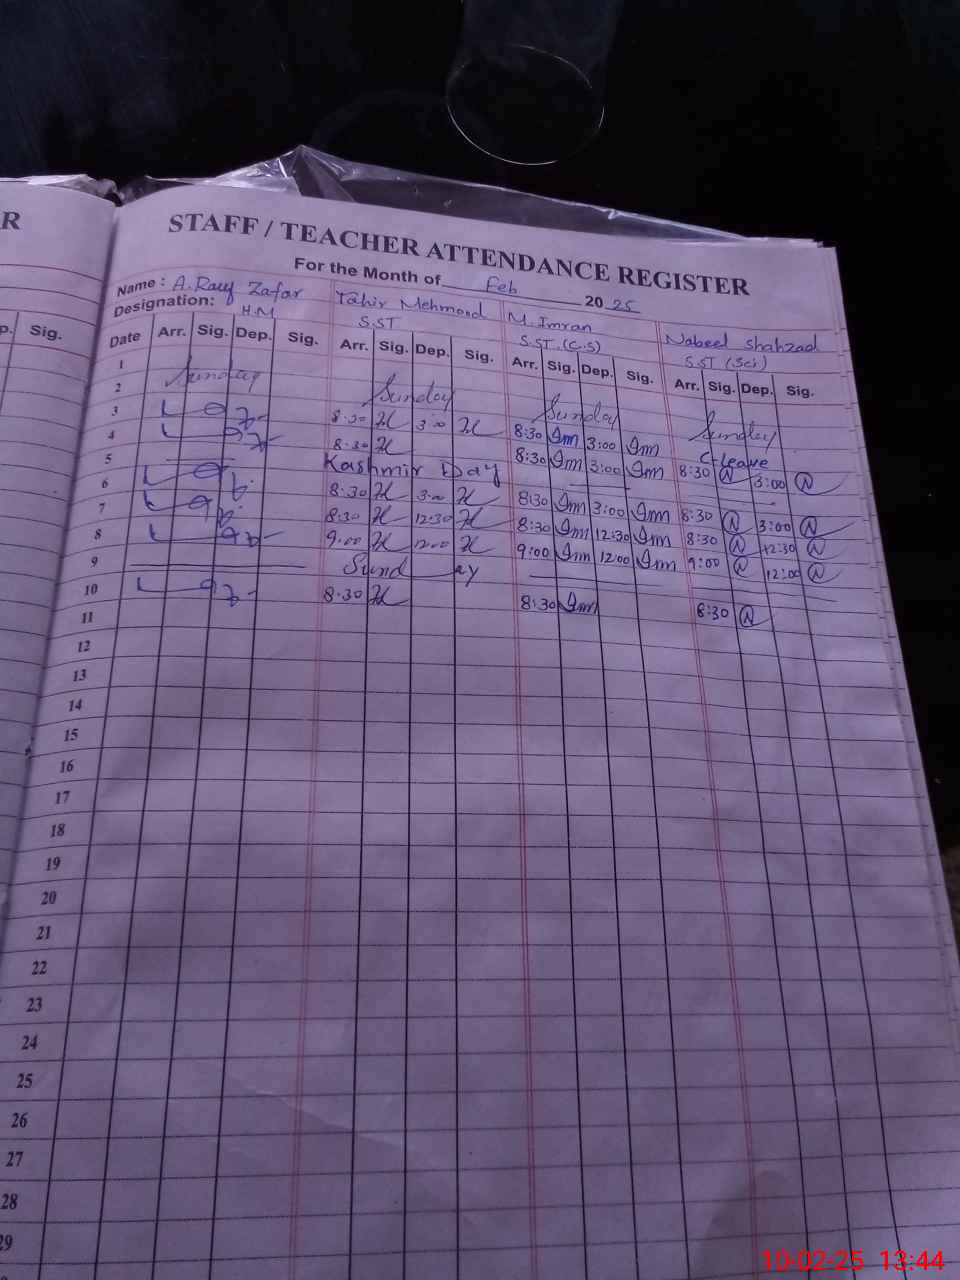 R
STAFF / TEACHER ATTENDANCE REGISTER
For the Month of Feb 20 25
Name : A. Rauf Zafar Tahir Mehmood M. Imran Nabeel Shahzad
Designation: H.M S.ST S.ST.(C.S) S.ST (Sci)
p. Sig. Date Arr. Sig. Dep. Sig. Arr. Sig. Dep. Sig. Arr. Sig. Dep. Sig. Arr. Sig. Dep. Sig.
1
2 Sunday Sunday Sunday Sunday
3 8:30 3:00 8:30 Imn 3:00 Imn C-leave
4 8:30 8:30 Imn 3:00 Imn 8:30 N 3:00 N
5 Kashmir Day
6 8:30 3:00 8:30 Imn 3:00 Imn 8:30 N 3:00 N
7 8:30 12:30 8:30 Imn 12:30 Imn 8:30 N 12:30 N
8 9:00 12:00 9:00 Imn 12:00 Imn 9:00 N 12:00 N
9 Sund ay
10 8:30 8:30 Imn 8:30 N
11
12
13
14
15
16
17
18
19
20
21
22
23
24
25
26
27
28
29
10-02-25 13:44